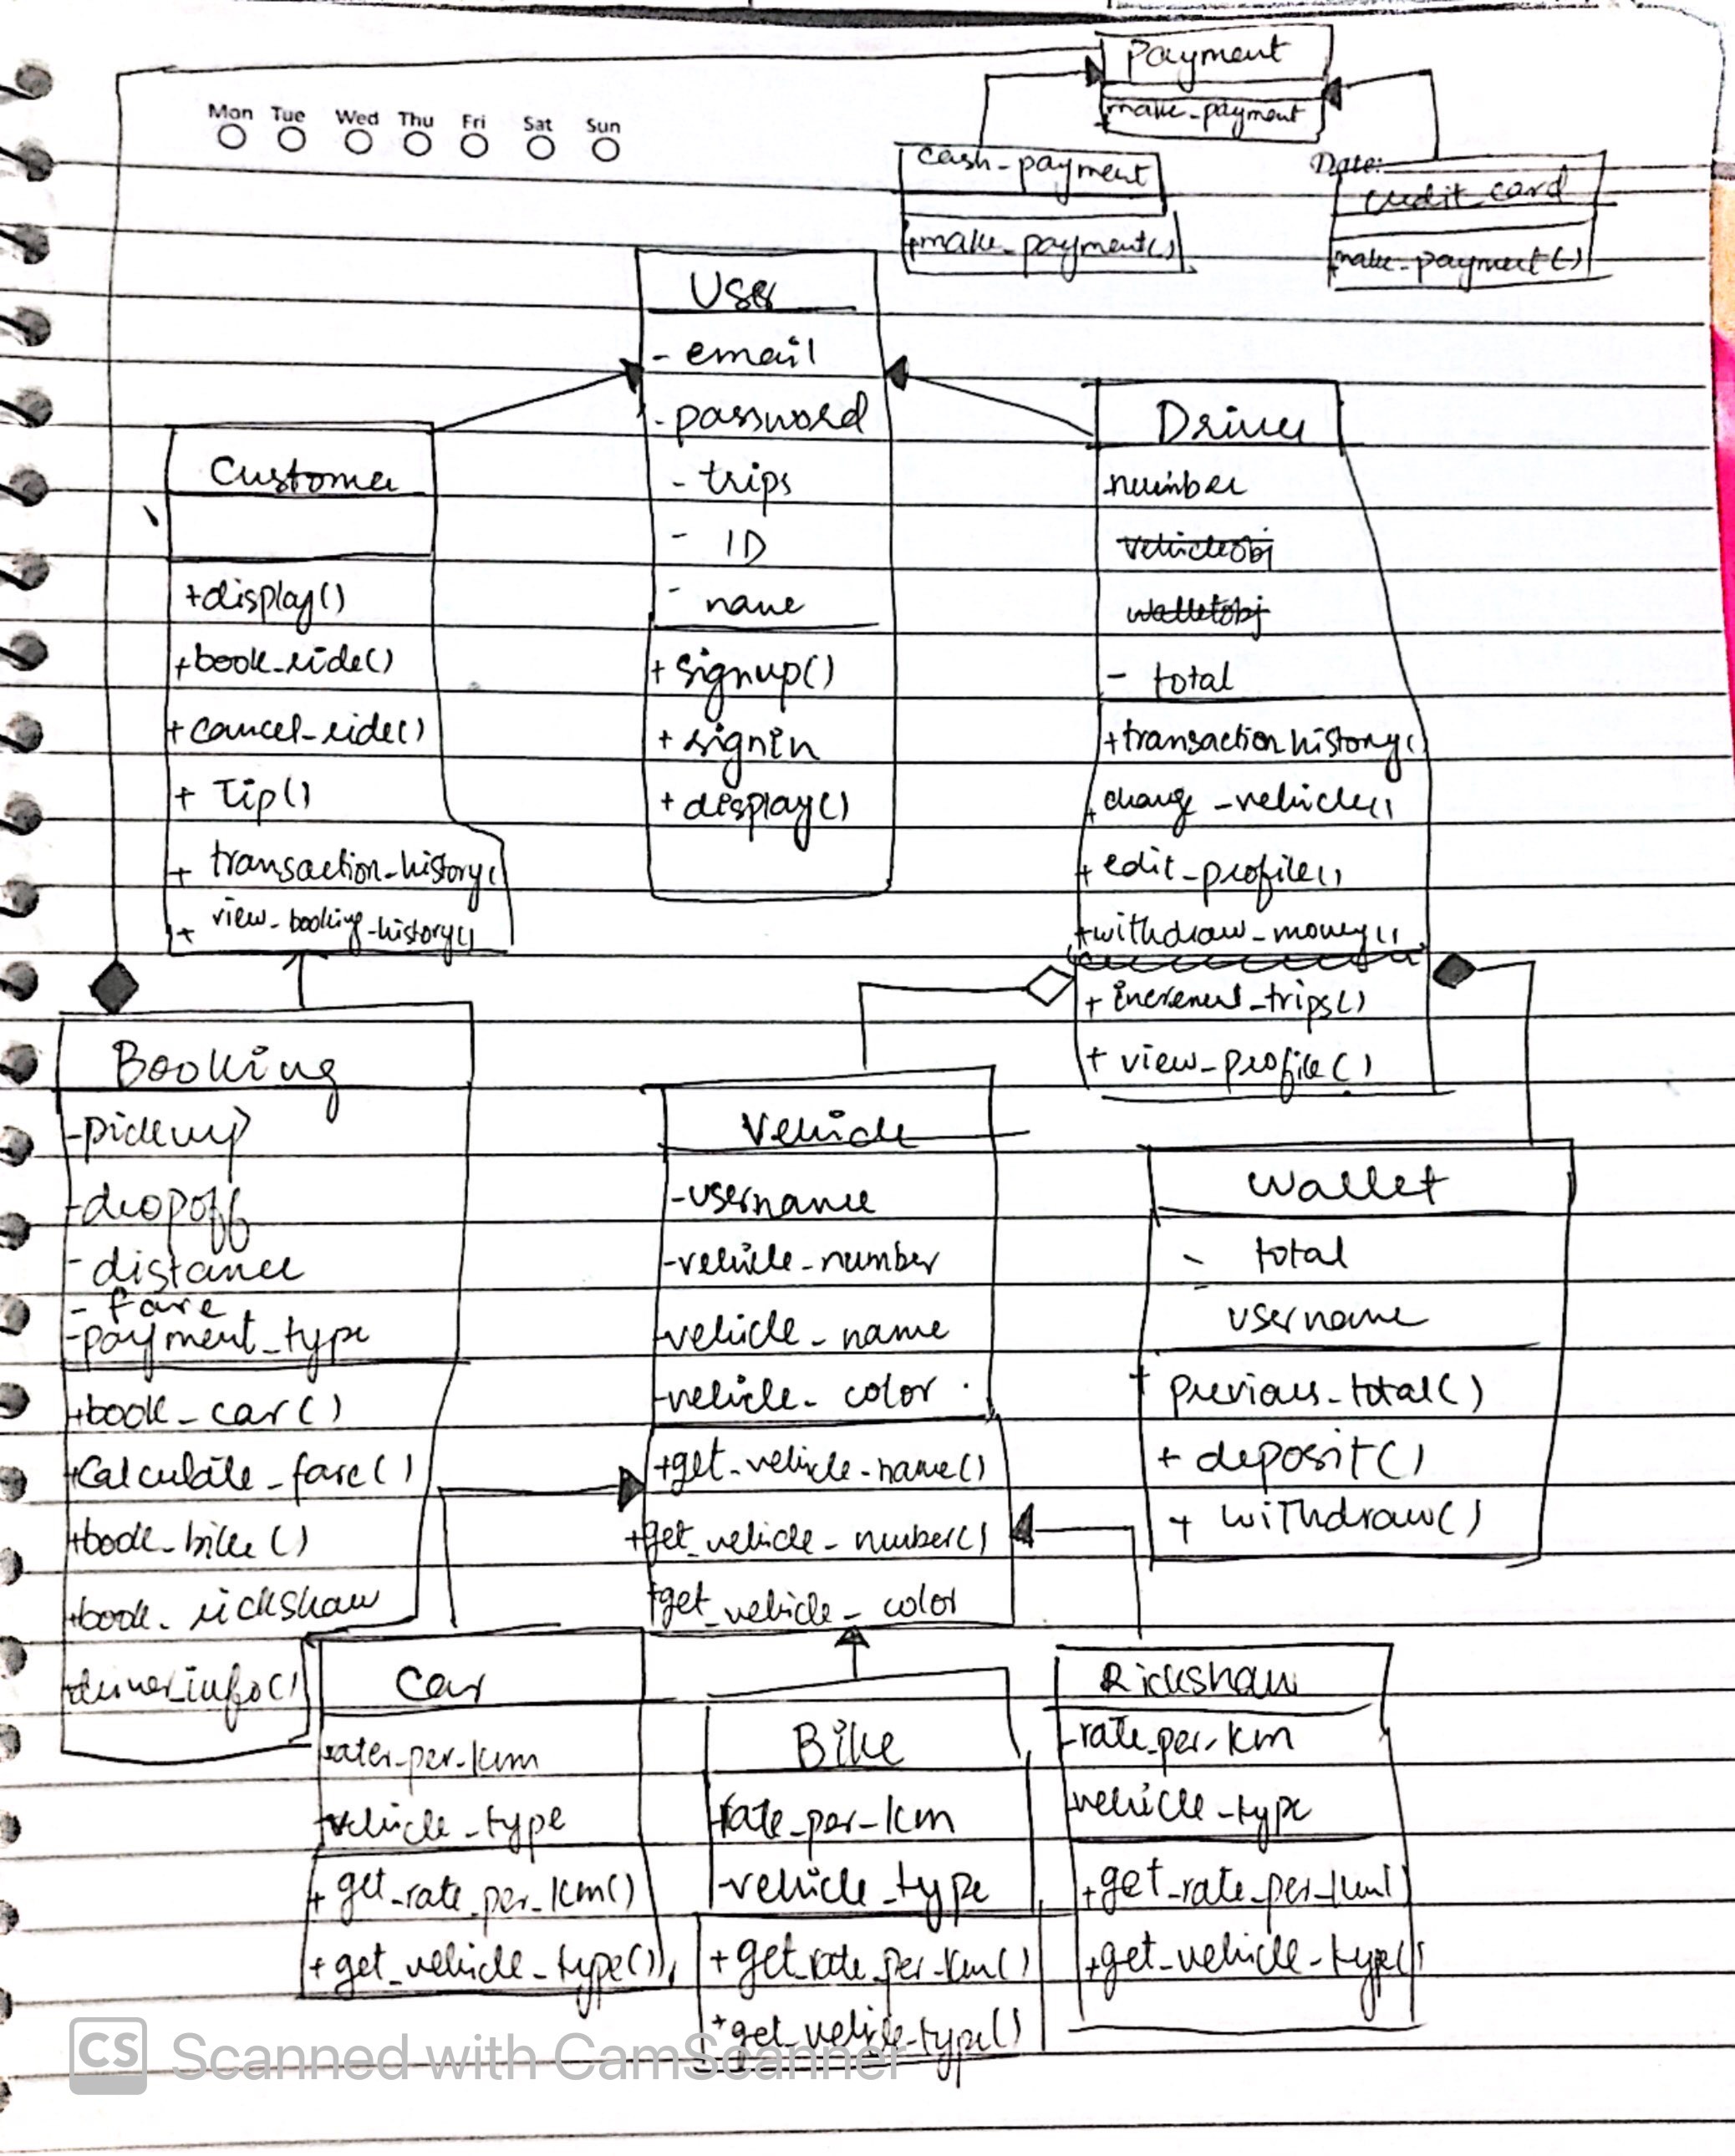 Payment
make_payment
Mon Tue Wed Thu Fri Sat Sun
cash-payment
+make_payment()
Date:
credit card
make-payment()
User
- email
- password
- trips
- ID
- name
+ signup()
+ signin
+ display()
Customer
+display()
+book_ride()
+cancel_ride()
+ Tip()
+ transaction_history()
+ view_booking_history()
Driver
number
vehicleobj
walletobj
- total
+transaction history()
+ change_vehicle()
+ edit_profile()
+withdraw_money()
+ increment_trips()
+ view_profile()
Booking
-pickup
-dropoff
- distance
- fare
-payment_type
+book_car()
+Calculate_fare()
+book_bike()
+book_rickshaw
+driver_info()
Vehicle
-username
-vehicle_number
-vehicle_name
-vehicle_color
+get_vehicle_name()
+get_vehicle_number()
+get_vehicle_color
Wallet
- total
- username
+ previous_total()
+ deposit()
+ withdraw()
Car
-rater_per_km
-vehicle_type
+ get_rate_per_km()
+ get_vehicle_type()
Bike
-rate_per_km
-vehicle_type
+ get_rate_per_km()
+ get_vehicle_type()
Rickshaw
-rate_per_km
-vehicle_type
+get_rate_per_km()
+get_vehicle_type()
CS Scanned with CamScanner